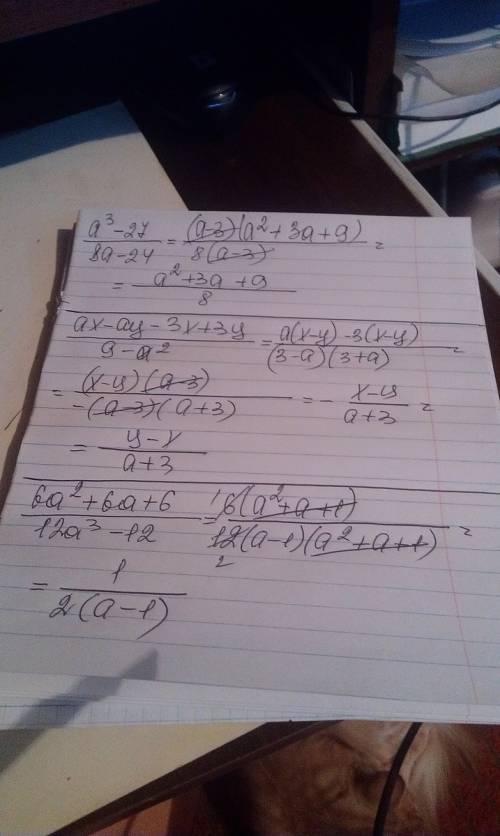 (a³-27)/(8a-24) = ((a-3)(a²+3a+9))/(8(a-3)) =
= (a²+3a+9)/8
(ax-ay-3x+3y)/(9-a²) = (a(x-y)-3(x-y))/((3-a)(3+a)) =
= ((x-y)(a-3))/(-(a-3)(a+3)) = -(x-y)/(a+3) =
= (y-x)/(a+3)
(6a²+6a+6)/(12a³-12) = (¹6(a²+a+1))/(12₂(a-1)(a²+a+1)) =
= 1/(2(a-1))